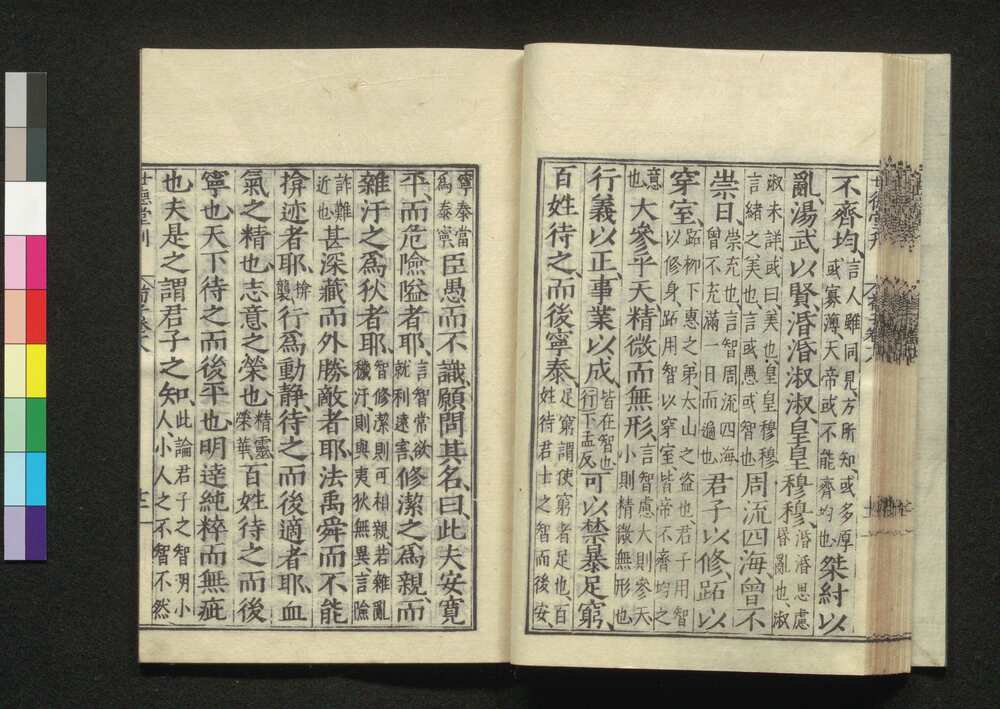 不齊均、言人雖同見、方所知、或多厚或寡薄、天帝或不能齊均也桀紂以
亂、湯武以賢、涽涽淑淑、皇皇穆穆、涽涽思慮昏亂也、淑
淑未詳或曰、美也、皇皇穆穆言緒之美也、言或愚或智也周流四海曾不
崇日、崇充也、言智周流四海曾不充滿一日而遍也君子以修、跖以
穿室、跖柳下惠之弟、太山之盜也、君子用智以修身、跖用智以穿室、皆帝不齊均之
意也大參乎天、精微而無形、言智慮大則參天小則精微無形也
行義以正、事業以成、皆在智也行下孟反可以禁暴足窮、
百姓待之、而後寧泰、足窮謂使窮者足也、百姓待君士之智而後安、
寧泰當為泰寧臣愚而不識、願問其名、曰、此夫安寬
平、而危險隘者耶、言智常欲就利遠害修潔之為親、而
雜汙之為狄者耶、智修潔則可相親若雜亂穢汙則與夷狄無異、言險
詐難近也甚深藏而外勝敵者耶、法禹舜而不能
揜迹者耶、揜襲行為動靜、待之而後適者耶、血
氣之精也、志意之榮也、精靈榮華百姓待之而後
寧也、天下待之而後平也、明達純粹而無疵
也、夫是之謂君子之知、此論君子之智明小人小人之不智不然